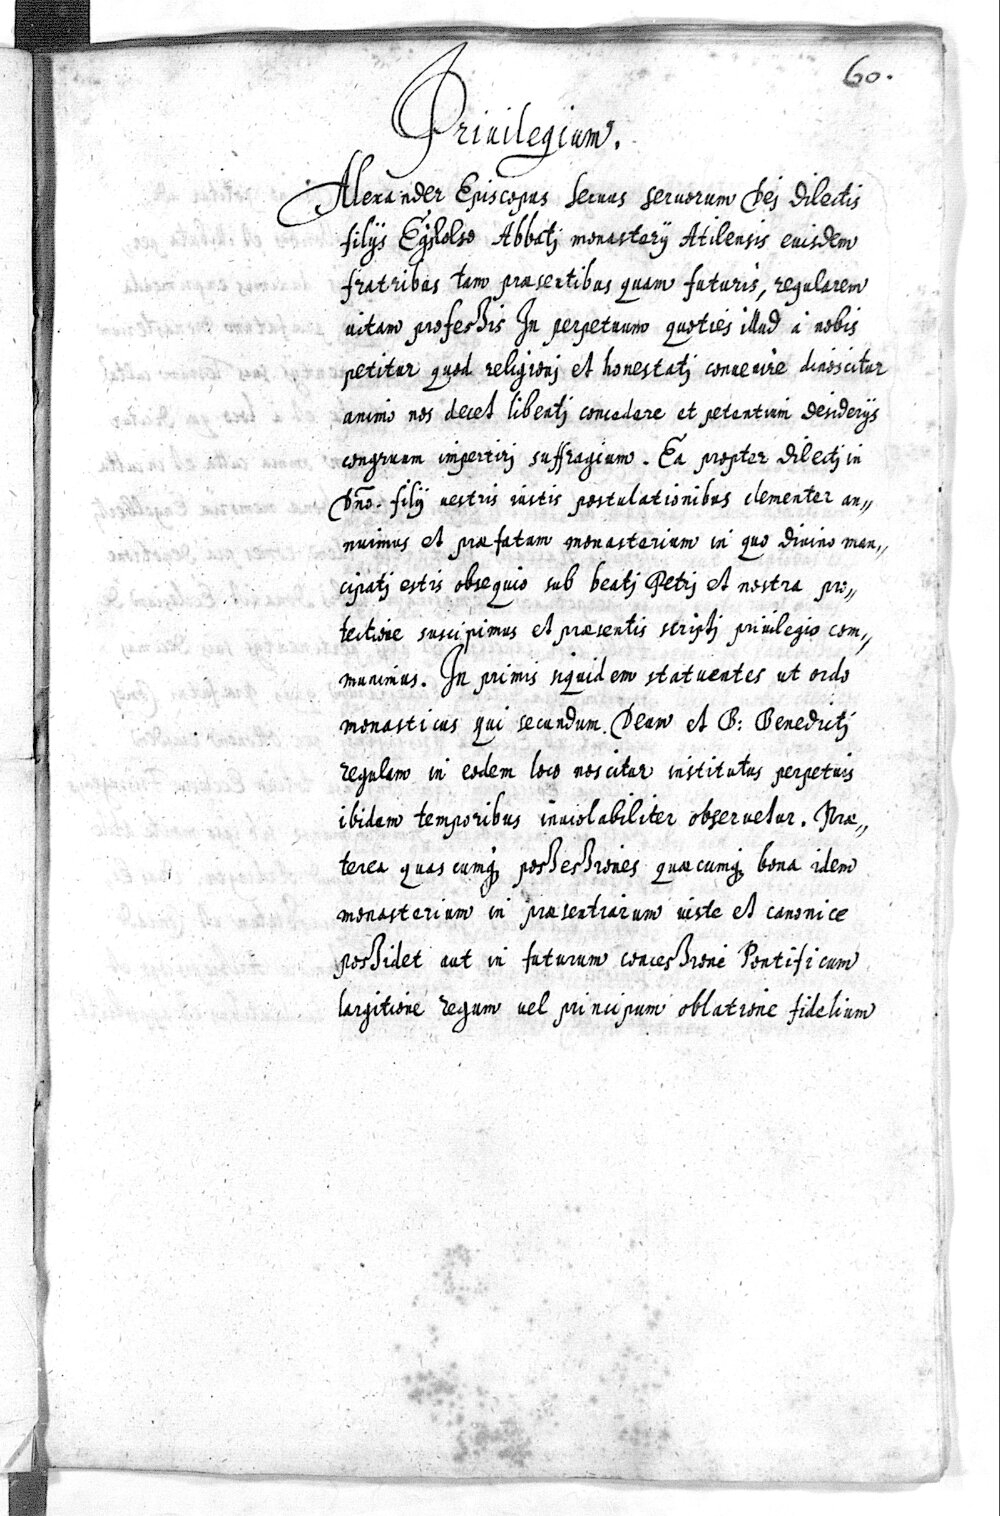 60.
Priuilegium.
Alexander Episcopus seruus seruorum Dej dilectis
filijs Egilolfo Abbatj monasterij Atilensis euisdem
fratribus tam præsentibus quam futuris, regularem
uitam professis In perpetuum quoties illud à nobis
petitur quod religionj et honestatj conuenire dinoscitur
animo nos decet libentj concedere et petentium desiderijs
congruum impertirj suffragium. Ea propter dilectj in
Dño. filij uestris iustis postulationibus clementer an„
nuimus et præfatum monasterium in quo diuino man„
cipatj estis obsequio sub beatj Petrj et nostra pro„
tectione suscipimus et præsentis scriptj priuilegio com„
munimus. In primis siquidem statuentes ut ordo
monasticus qui secundum Deum et B: Benedictj
regulam in eodem loco noscitur institutus perpetuis
ibidem temporibus inuiolabiliter obseruetur. Præ„
terea quascumq possessiones quæcumq bona idem
monasterium in præsentiarum iuste et canonice
possidet aut in futurum concessione Pontificum
largitione regum uel principum oblatione fidelium